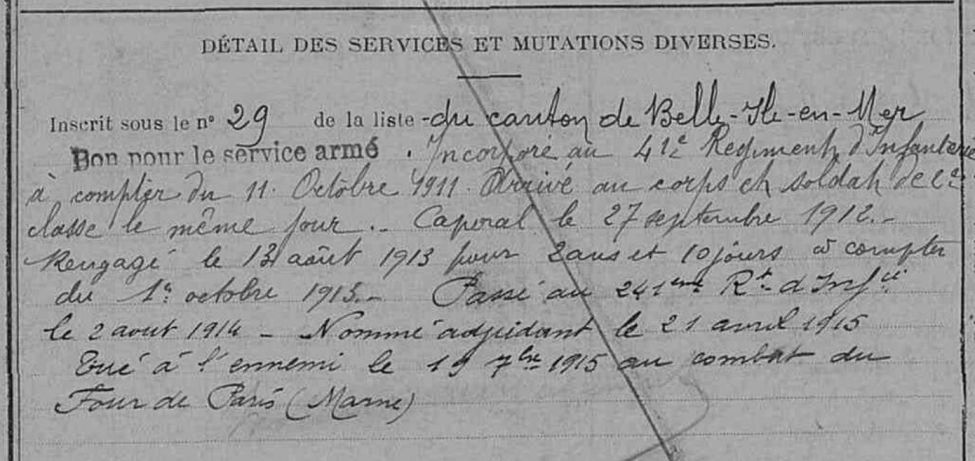 DÉTAIL DES SERVICES ET MUTATIONS DIVERSES.
Inscrit sous le n° 29 de la liste du canton de Belle-Ile-en-Mer
Bon pour le service armé. Incorporé au 41e Régiment d'Infanterie
à compter du 11 Octobre 1911. Arrivé au corps et soldat de 2e
classe le même jour.- Caporal le 27 septembre 1912.-
Rengagé le 13 août 1913 pour 2 ans et 10 jours à compter
du 1er octobre 1913.- Passé au 241eme Rt d'Infie
le 2 aout 1914 - Nommé adjudant le 21 avril 1915
Tué à l'ennemi le 7bre 1915 au combat du
Four de Paris (Marne)